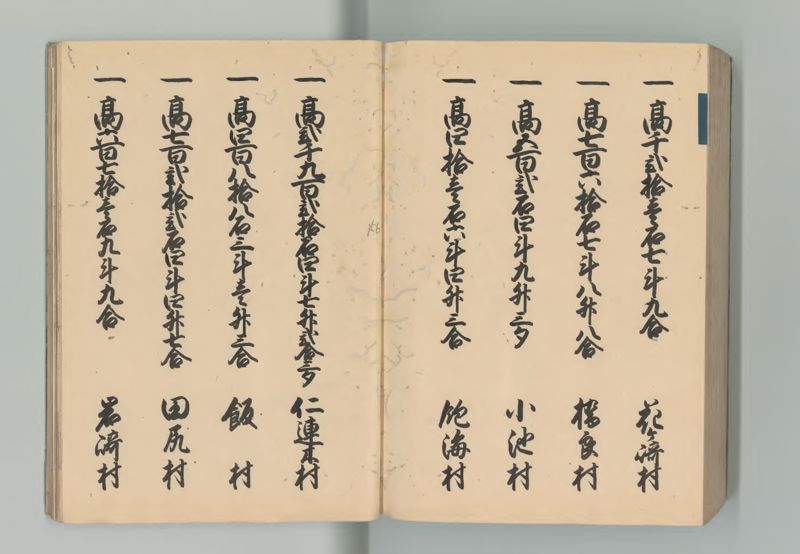 一 高千弐拾壱石七斗九合 花ヶ崎村
一 高七百六拾石七斗八升八合 橋良村
一 高五百弐石四斗九升三夕 小池村
一 高四拾壱石六斗四升三合 飽海村
一 高弐千九百弐拾石四斗七升弐合三夕 仁連木村
一 高四百八拾八石三斗壱升三合 飯村
一 高七百弐拾弐石四斗四升七合 田尻村
一 高六百七拾壱石九斗九合 岩崎村
156